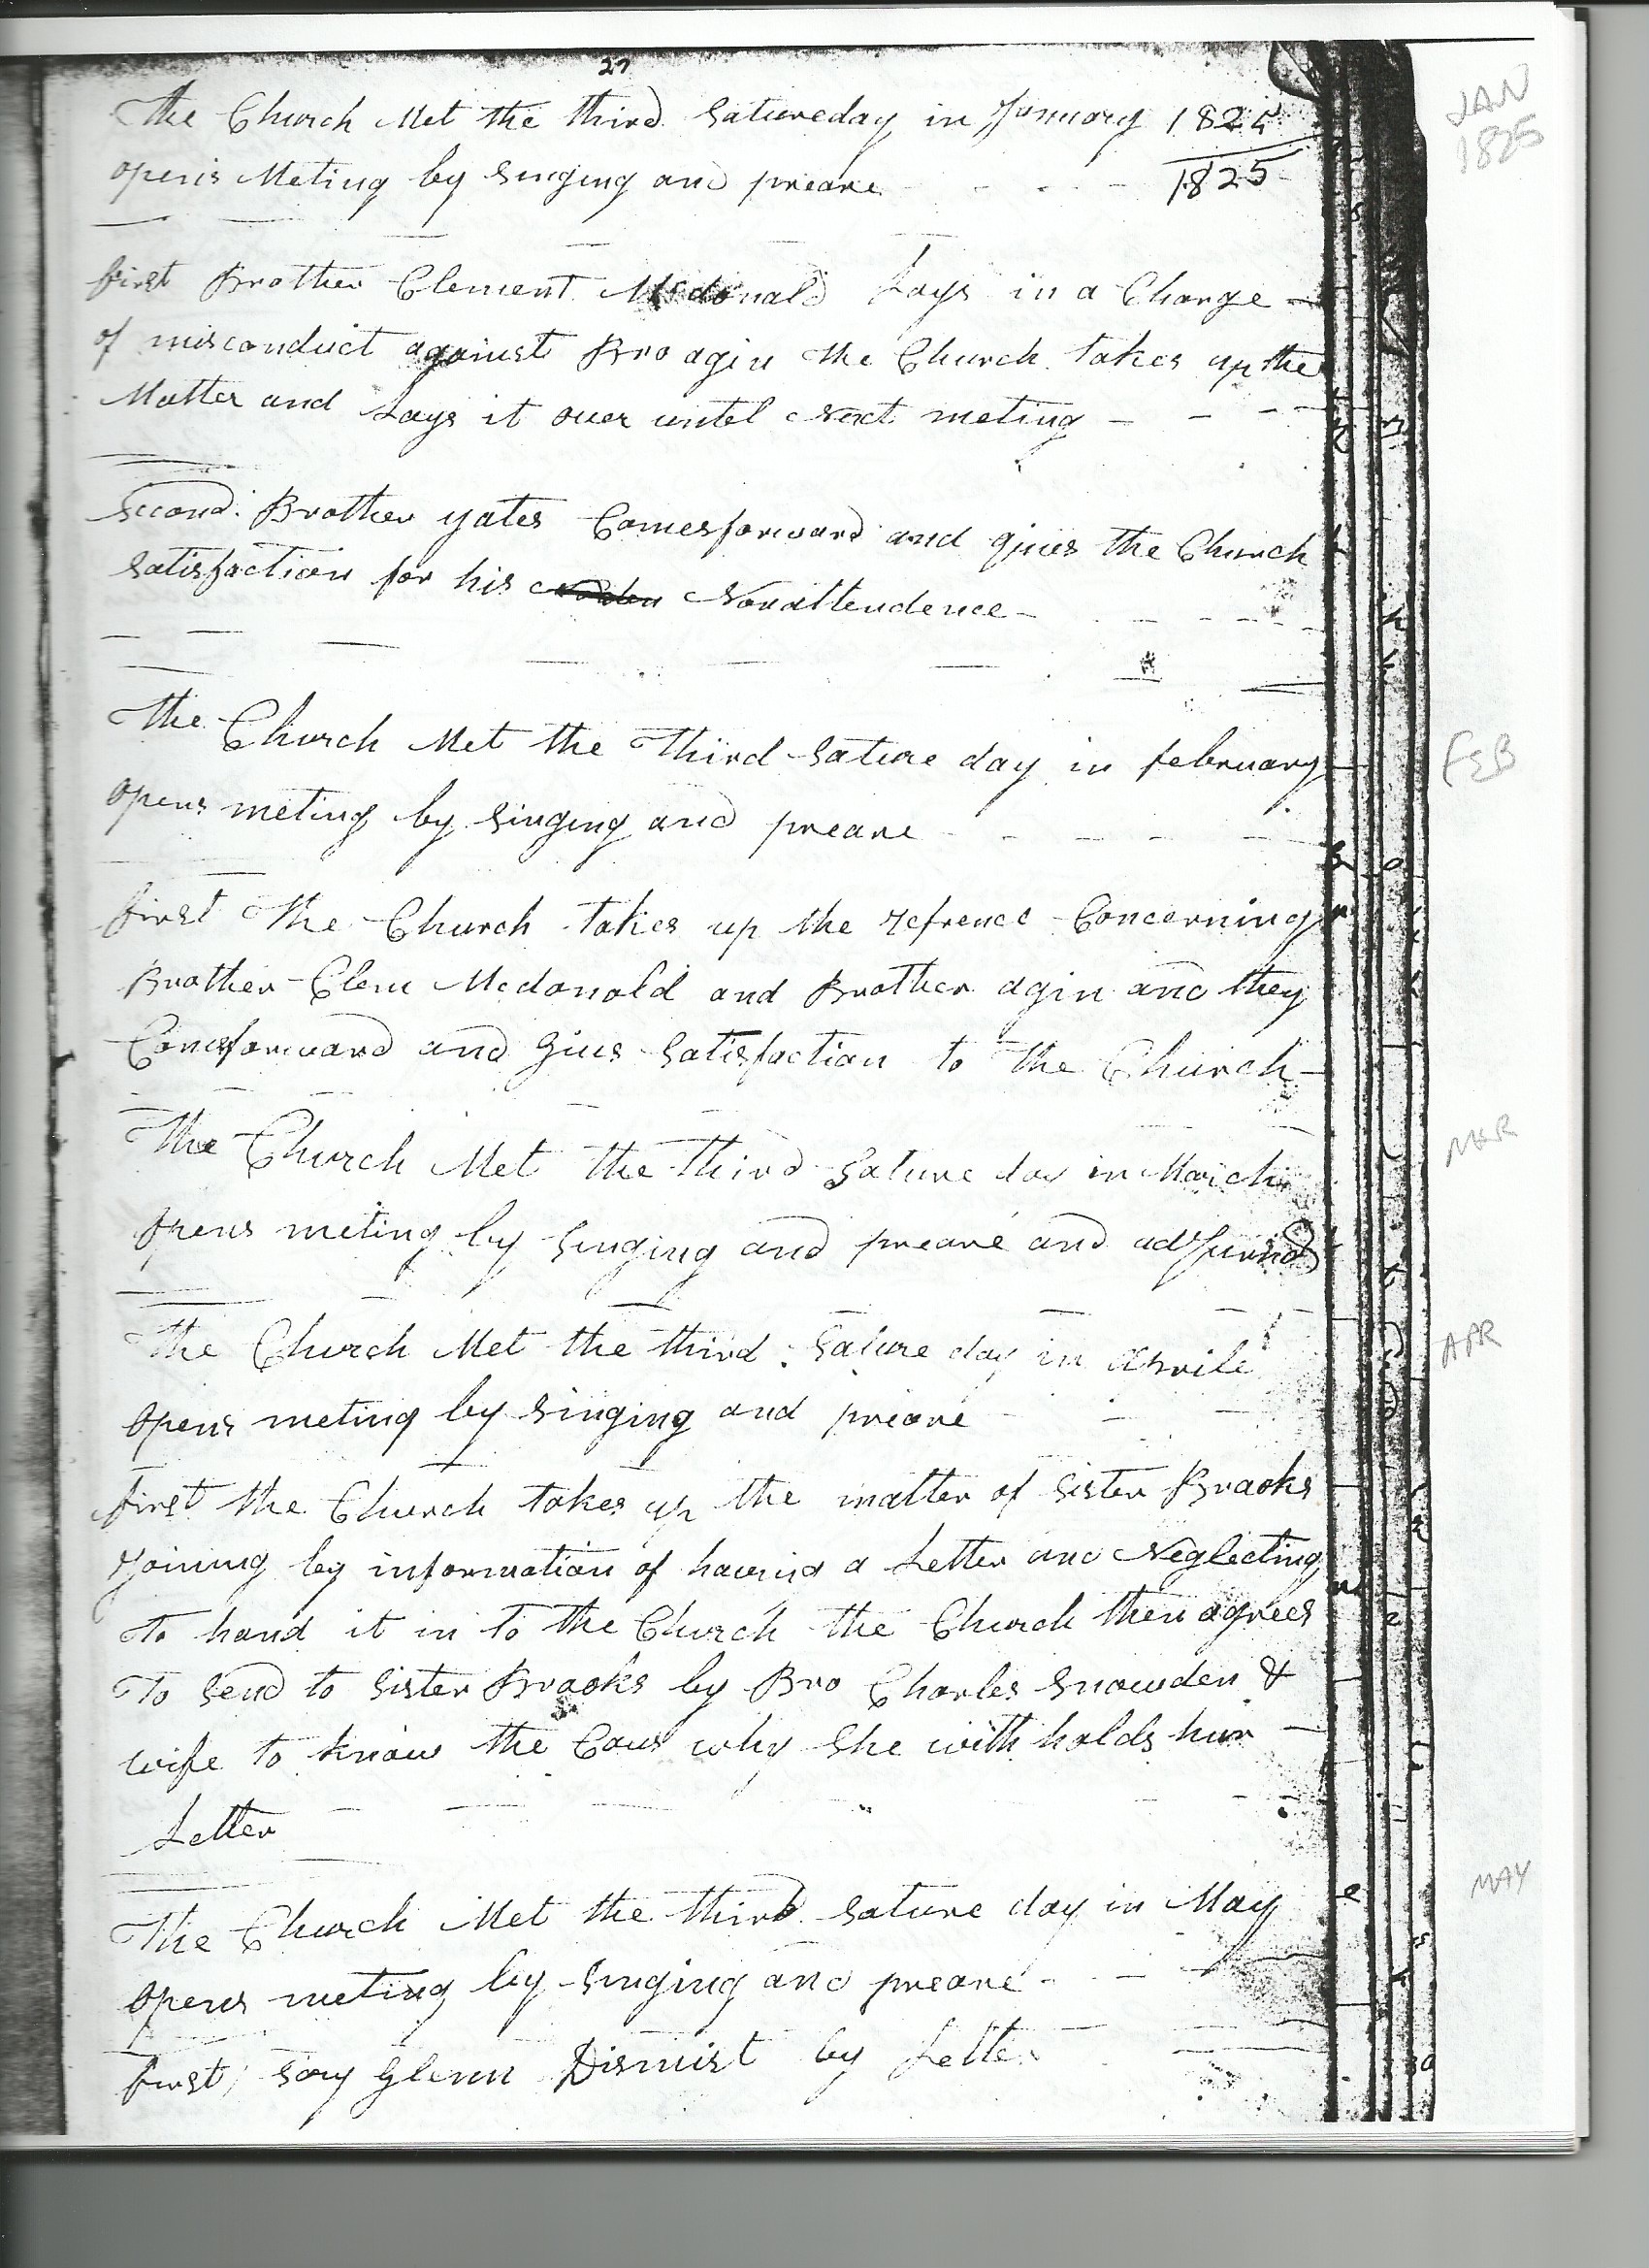 27
The Church Met the third Satureday in January 1825
JAN
1825
opens Meting by Singing and preare
1825
first Brother Clement Mcdonald Lays in a Charge
of misconduct against Bro agin the Church takes up the
Matter and Lays it over until Next meting
Second: Brother yates Comesforward and gives the Church
Satisfaction for his Nonattendence
The Church Met the Third Sature day in february
FEB
opens meting by Singing and preare
first The Church takes up the refrence Concerning
Brother Clem Mcdonald and Brother agin and they
Comesforward and Gives Satisfaction to the Church
The Church Met the Third Sature day in March
MAR
opens meting by Singing and preare and adjurnd
The Church Met the third Sature day in Aprile
APR
opens meting by Singing and preare
first the Church takes up the matter of Sister Brooks
Joining by information of having a Letter and Neglecting
To hand it in to the Church the Church then agrees
To Send to Sister Brooks by Bro Charles Snowden &
wife to know the Caus why She with holds hur
Letter
The Church Met the third Sature day in May
MAY
opens meting by Singing and preare
first Glenn Dismist by Letter